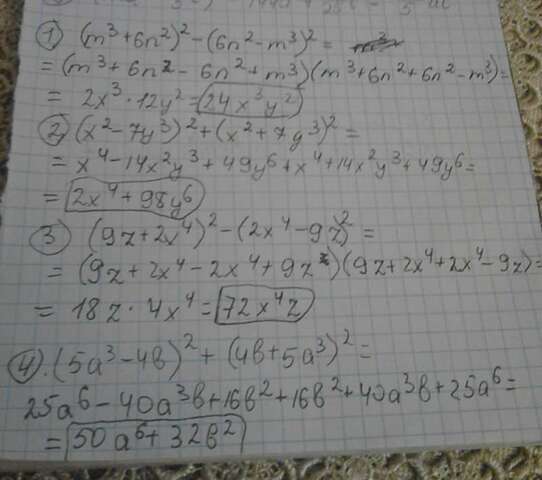 1) (m³+6n²)²-(6n²-m³)²=
=(m³+6n²-6n²+m³)(m³+6n²+6n²-m³)=
=2x³·12y²=24x³y²
2) (x²-7y³)²+(x²+7y³)²=
=x⁴-14x²y³+49y⁶+x⁴+14x²y³+49y⁶=
=2x⁴+98y⁶
3) (9z+2x⁴)²-(2x⁴-9z)²=
=(9z+2x⁴-2x⁴+9z)(9z+2x⁴+2x⁴-9z)=
=18z·4x⁴=72x⁴z
4). (5a³-4b)²+(4b+5a³)²=
25a⁶-40a³b+16b²+16b²+40a³b+25a⁶=
=50a⁶+32b²